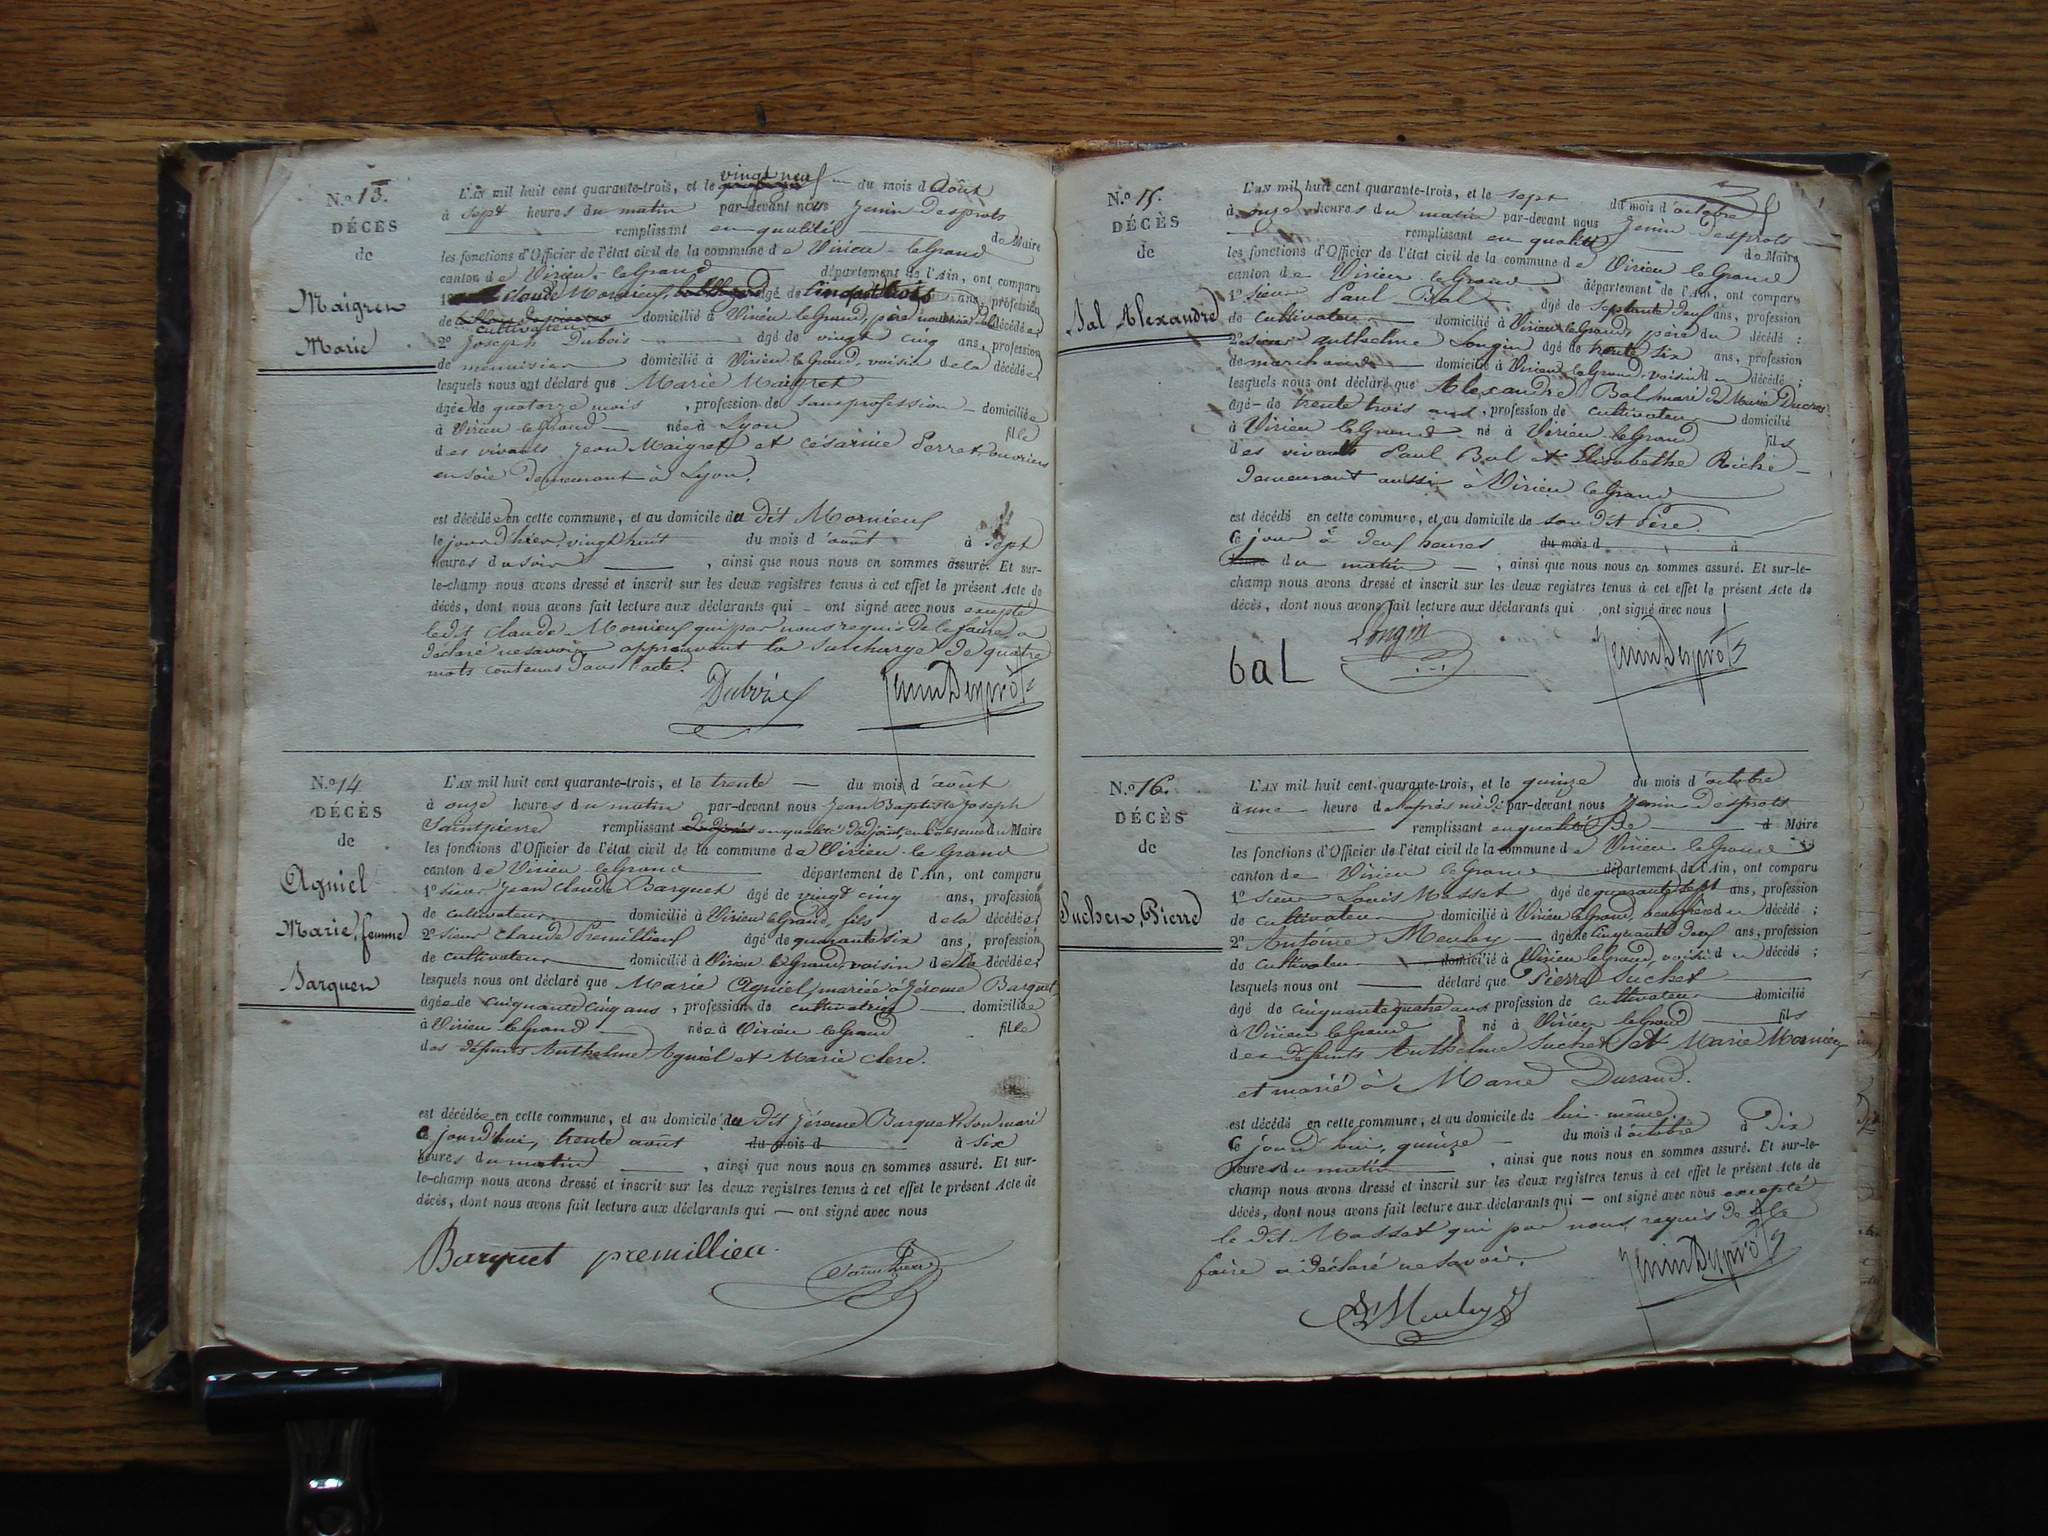 N.o 13.
DÉCÈS
de
Maigret
Marie
L'AN mil huit cent quarante-trois, et le vingt neuf du mois d'août
à sept heures du matin par-devant nous Jenin Desprots
remplissant en qualité de Maire
les fonctions d'Officier de l'état civil de la commune de Virieu-le Grand
canton de Virieu-le Grand département de l'Ain, ont comparu
1º Claude Mornieux, âgé de cinquante trois ans, profession
de cultivateur domicilié à Virieu le Grand, père nourricier de la décédée;
2º Joseph Dubois âgé de vingt cinq ans, profession
de menuisier domicilié à Virieu le Grand, voisin de la décédée;
lesquels nous ont déclaré que Marie Maigret
âgée de quatorze mois, profession de sans profession domiciliée
à Virieu le Grand née à Lyon fille
des vivants Jean Maigret et Césarine Perret, ouvriers
en soie demeurant à Lyon.
est décédée en cette commune, et au domicile du dit Mornieux
le jour d'hier, vingt huit du mois d'août à sept
heures du soir, ainsi que nous nous en sommes assuré. Et sur-
le-champ nous avons dressé et inscrit sur les deux registres tenus à cet effet le présent Acte de
décès, dont nous avons fait lecture aux déclarants qui ont signé avec nous excepté
le dit Claude Mornieux qui par nous requis de le faire a
déclaré ne savoir approuvant la surcharge de quatre
mots contenus dans l'acte.
Dubois JeninDesprots
N.o 14
DÉCÈS
de
Agniel
Marie, femme
Barquet
L'AN mil huit cent quarante-trois, et le trente du mois d'août
à onze heures du matin par-devant nous Jean Baptiste Joseph
Saintpierre remplissant en qualité d'adjoint, en l'absence du Maire
les fonctions d'Officier de l'état civil de la commune de Virieu-le Grand
canton de Virieu le Grand département de l'Ain, ont comparu
1º sieur Jean Claude Barquet âgé de vingt cinq ans, profession
de cultivateur domicilié à Virieu le Grand, fils de la décédée;
2º sieur Claude Premillieux âgé de quarante six ans, profession
de cultivateur domicilié à Virieu le Grand, voisin de la décédée;
lesquels nous ont déclaré que Marie Agniel, mariée à Jérome Barquet
âgée de cinquante cinq ans, profession de cultivatrice domiciliée
à Virieu le Grand née à Virieu le Grand fille
des défunts Anthelme Agniel et Marie Clerc.
est décédée en cette commune, et au domicile du dit Jérome Barquet son mari
ce jourd'hui, trente août du mois d à six
heures du matin, ainsi que nous nous en sommes assuré. Et sur-
le-champ nous avons dressé et inscrit sur les deux registres tenus à cet effet le présent Acte de
décès, dont nous avons fait lecture aux déclarants qui — ont signé avec nous
Barquet premillieu SaintPierre
N.o 15.
DÉCÈS
de
Bal Alexandre
L'AN mil huit cent quarante-trois, et le sept du mois d'octobre
à onze heures du matin par-devant nous Jenin Desprots
remplissant en qualité de Maire
les fonctions d'Officier de l'état civil de la commune de Virieu le Grand
canton de Virieu le Grand département de l'Ain, ont comparu
1º sieur Paul Bal âgé de septante deux ans, profession
de cultivateur domicilié à Virieu le Grand, père du décédé;
2º sieur Anthelme Longin âgé de trente six ans, profession
de marchand domicilié à Virieu le Grand, voisin du décédé;
lesquels nous ont déclaré que Alexandre Bal mari de Marie Ducros
âgé de trente trois ans, profession de cultivateur domicilié
à Virieu le Grand né à Virieu le Grand fils
des vivants Paul Bal et Elisabethe Riche
demeurant aussi à Virieu le Grand
est décédé en cette commune, et au domicile de son dit Père.
Ce jour à deux heures du mois d à
heures du matin, ainsi que nous nous en sommes assuré. Et sur-le-
champ nous avons dressé et inscrit sur les deux registres tenus à cet effet le présent Acte de
décès, dont nous avons fait lecture aux déclarants qui ont signé avec nous
bal Longin JeninDesprots
N.o 16.
DÉCÈS
de
Suchet, Pierre
L'AN mil huit cent quarante-trois, et le quinze du mois d'octobre
à une heure de l'après midi par-devant nous Jenin Desprots
remplissant en qualité de Maire
les fonctions d'Officier de l'état civil de la commune de Virieu le Grand
canton de Virieu le Grand département de l'Ain, ont comparu
1º sieur Louis Masset âgé de quarante sept ans, profession
de cultivateur domicilié à Virieu le Grand, beaufrère du décédé;
2º Antoine Meuley âgé de cinquante deux ans, profession
de cultivateur domicilié à Virieu le Grand, voisin du décédé;
lesquels nous ont déclaré que Pierre Suchet
âgé de cinquante quatre ans profession de cultivateur domicilié
à Virieu le Grand né à Virieu le Grand fils
des défunts Anthelme Suchet et Marie Mornieux
et marié à Marie Durand.
est décédé en cette commune, et au domicile de lui-même
ce jourd'hui, quinze du mois d'octobre à dix
heures du matin, ainsi que nous nous en sommes assuré. Et sur-le-
champ nous avons dressé et inscrit sur les deux registres tenus à cet effet le présent Acte de
décès, dont nous avons fait lecture aux déclarants qui — ont signé avec nous excepté
le dit Masset qui par nous requis de le
faire a déclaré ne savoir.
Meuley JeninDesprots